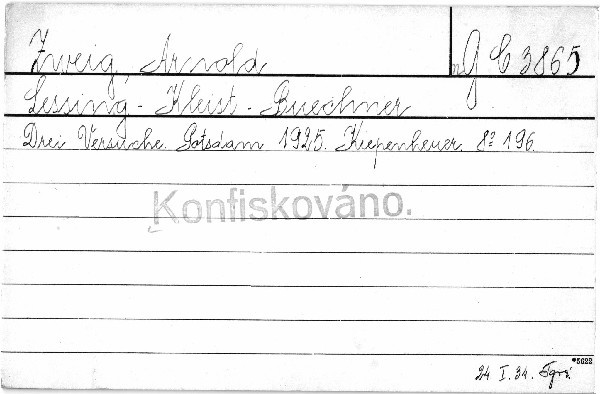 Zweig, Arnold
G C 3865
Lessing - Kleist - Buechner
Drei Versuche. Potsdam 1925. Kiepenheuer. 8° 196.
Konfiskováno.
*5622
24 I. 34.